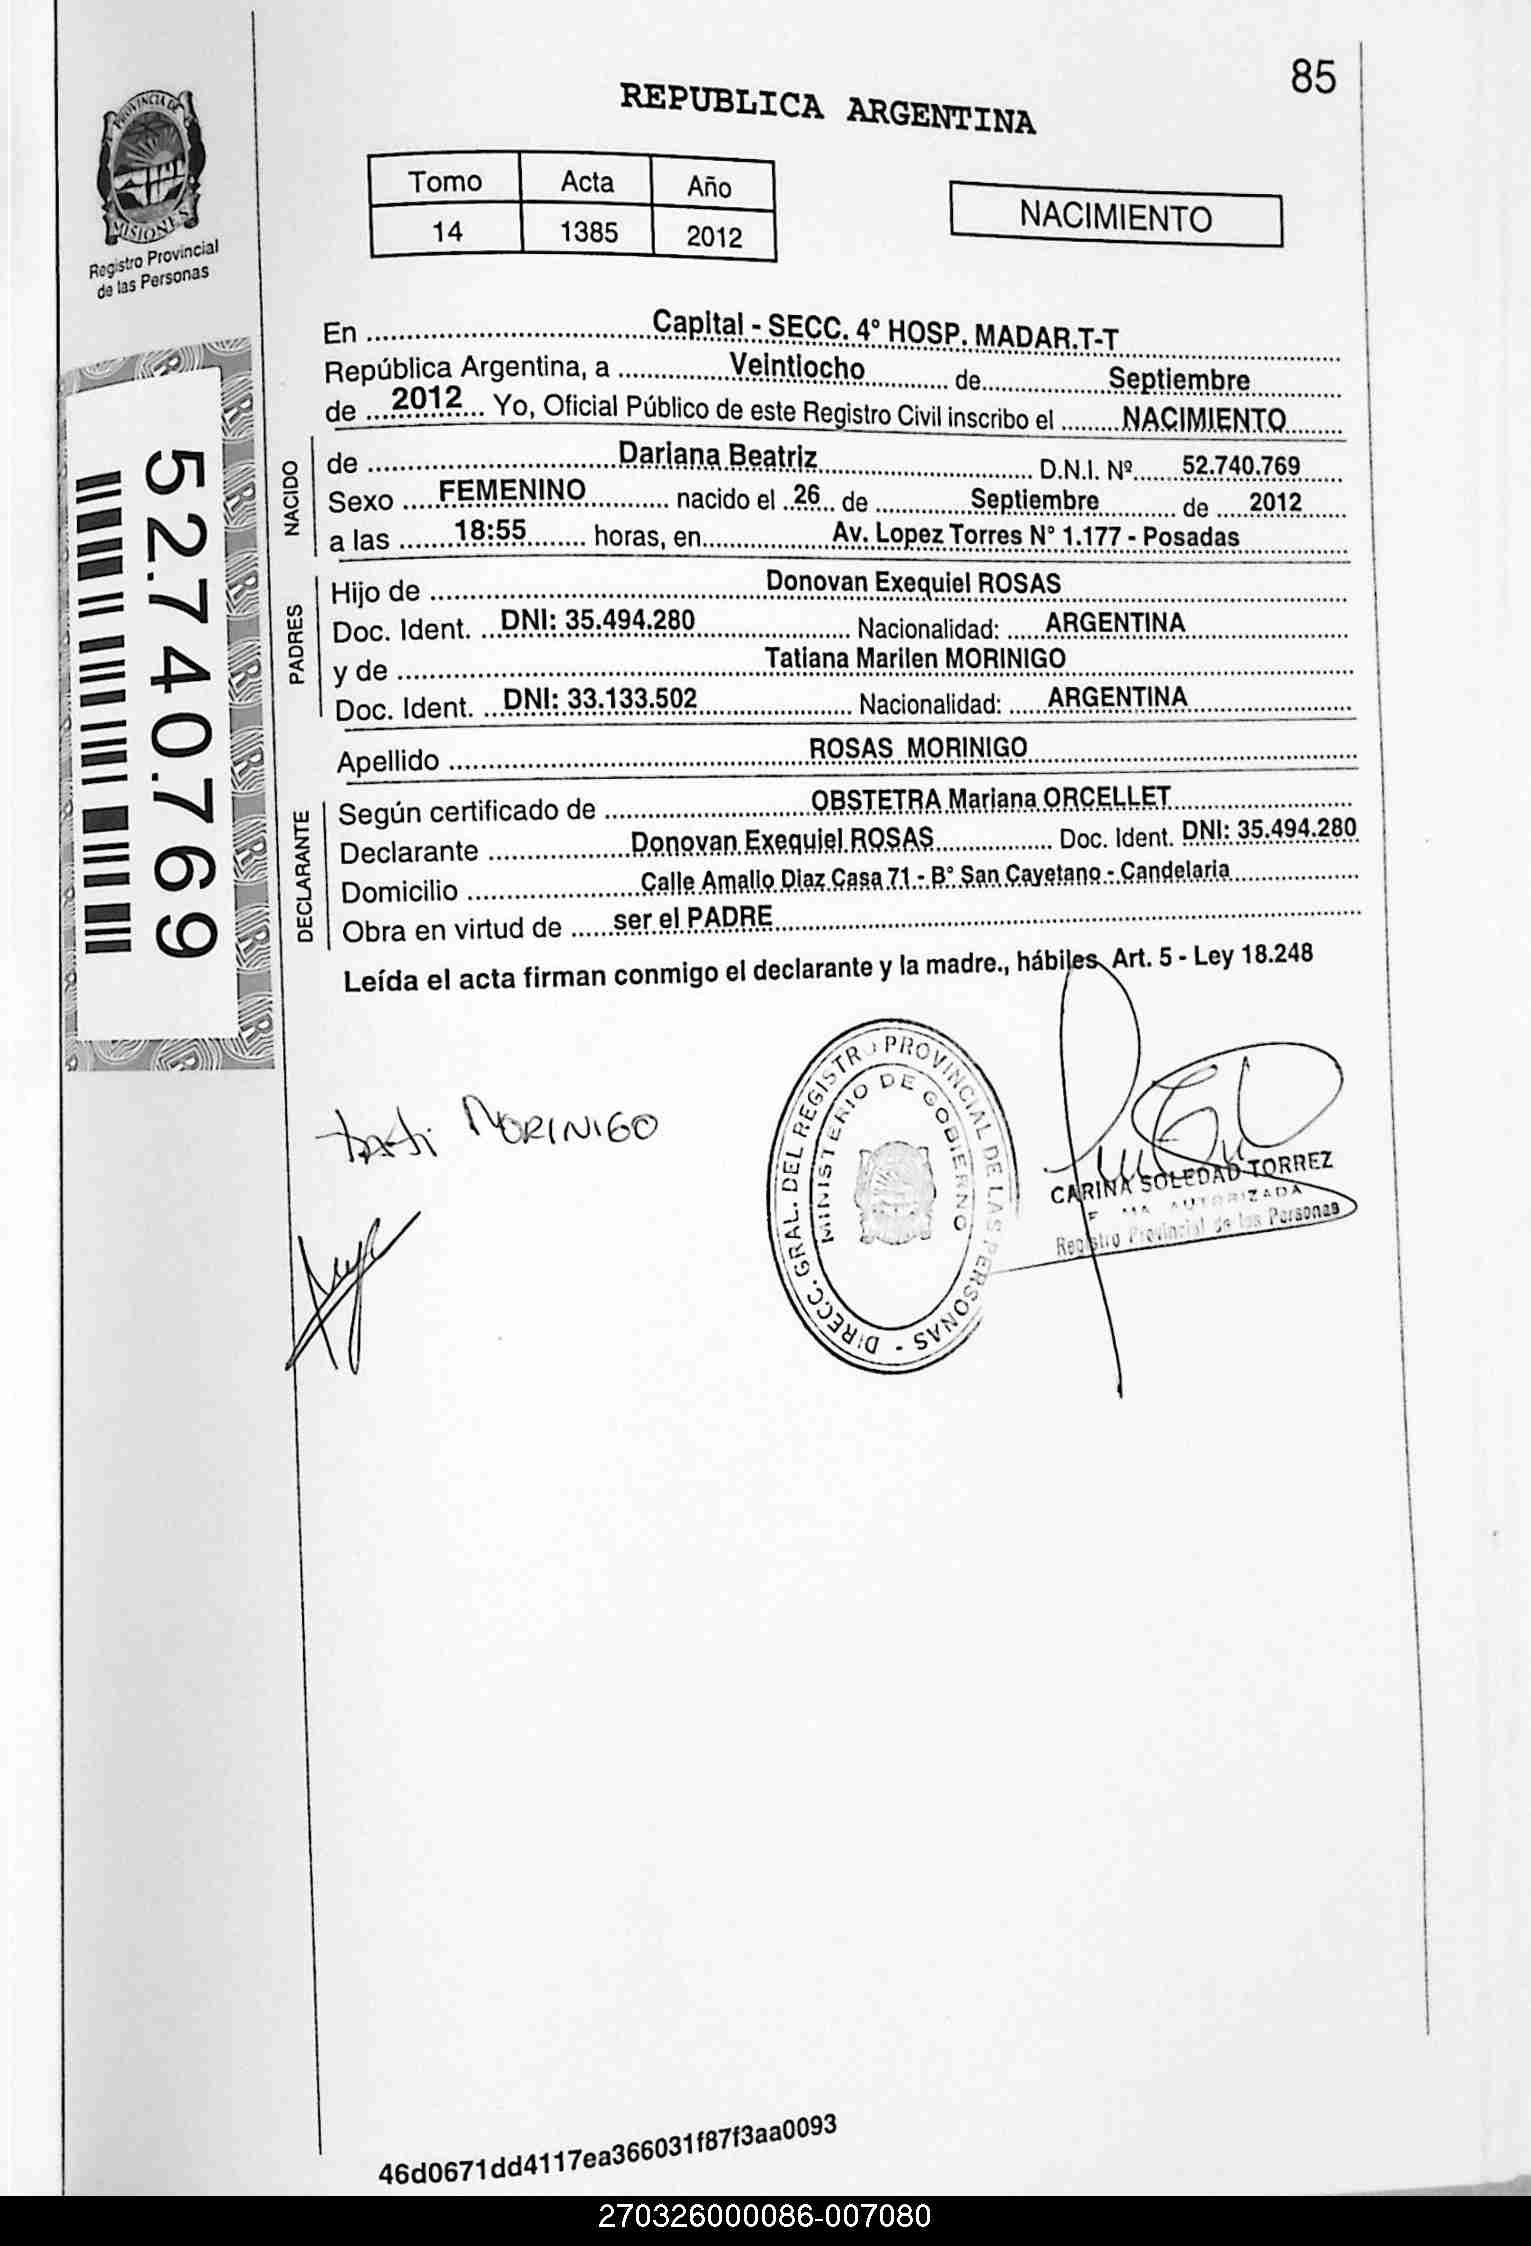 85
REPUBLICA ARGENTINA
PROVINCIA DE
MISIONES
Registro Provincial
de las Personas
Tomo Acta Año
14 1385 2012
NACIMIENTO
52.740.769
En ........ Capital - SECC. 4° HOSP. MADAR.T-T
República Argentina, a ........ Veintiocho ........ de ........ Septiembre
de .... 2012 .... Yo, Oficial Público de este Registro Civil inscribo el ........ NACIMIENTO ........
NACIDO
de ........ Dariana Beatriz ........ D.N.I. Nº ...... 52.740.769 ......
Sexo ..... FEMENINO ........ nacido el .. 26 .. de ........ Septiembre ........ de .... 2012 ......
a las ....... 18:55 ........ horas, en ........ Av. Lopez Torres N° 1.177 - Posadas ........
PADRES
Hijo de ........ Donovan Exequiel ROSAS ........
Doc. Ident. ... DNI: 35.494.280 ........ Nacionalidad: ..... ARGENTINA ........
y de ........ Tatiana Marilen MORINIGO ........
Doc. Ident. ... DNI: 33.133.502 ........ Nacionalidad: ..... ARGENTINA ........
Apellido ........ ROSAS MORINIGO ........
DECLARANTE
Según certificado de ........ OBSTETRA Mariana ORCELLET ........
Declarante ........ Donovan Exequiel ROSAS ........ Doc. Ident. DNI: 35.494.280
Domicilio ........ Calle Amalio Diaz Casa 71 - B° San Cayetano - Candelaria ........
Obra en virtud de ...... ser el PADRE ........
Leída el acta firman conmigo el declarante y la madre., hábiles Art. 5 - Ley 18.248
MORINIGO
DIRECC. GRAL. DEL REGISTRO PROVINCIAL DE LAS PERSONAS -
MINISTERIO DE GOBIERNO
CARINA SOLEDAD TORREZ
AUTORIZADA
Registro Provincial de las Personas
46d0671dd4117ea366031f87f3aa0093
270326000086-007080